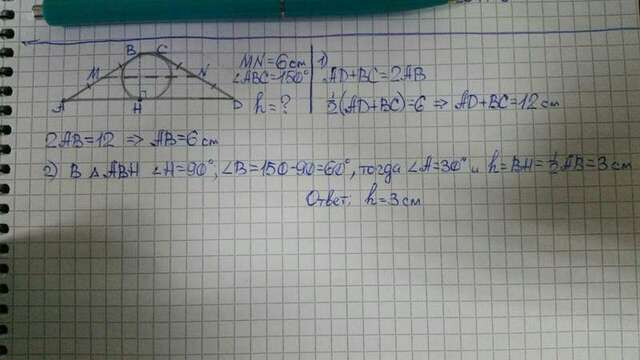 B C
M N
A H D
MN=6см
∠ABC=150°
h=?
1)
AD+BC=2AB
½(AD+BC)=6 ⇒ AD+BC=12см
2AB=12 ⇒ AB=6см
2) В △ABH ∠H=90°, ∠B=150-90=60°, тогда ∠A=30° и h=BH=½AB=3см
Ответ: h=3см